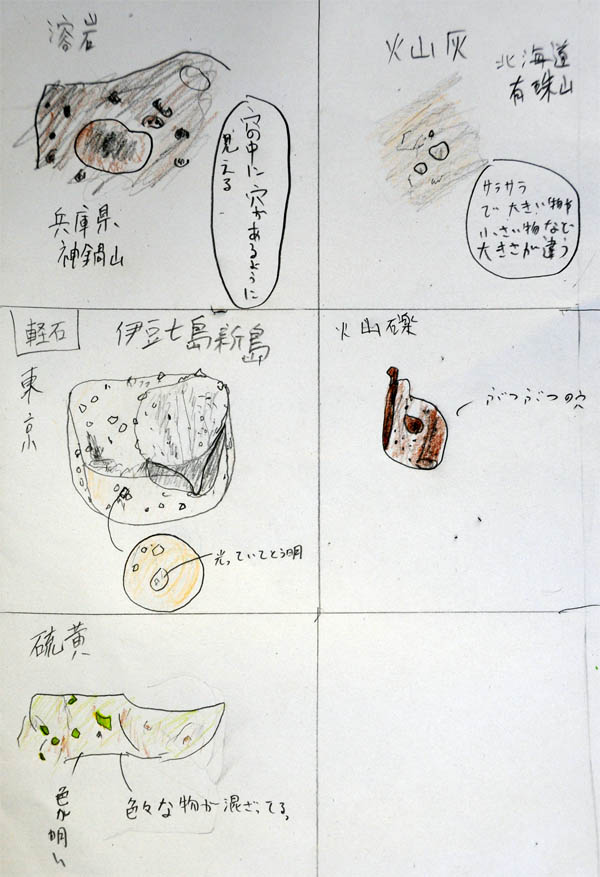 溶岩
穴の中に穴があるように
見える
兵庫県
神鍋山
火山灰
北海道
有珠山
サラサラ
で大きい物や
小さい物など
大きさが違う
軽石
伊豆七島新島
東京
光っていてとう明
火山礫
ぶつぶつの穴
硫黄
色が明い
色々な物が混ざってる。